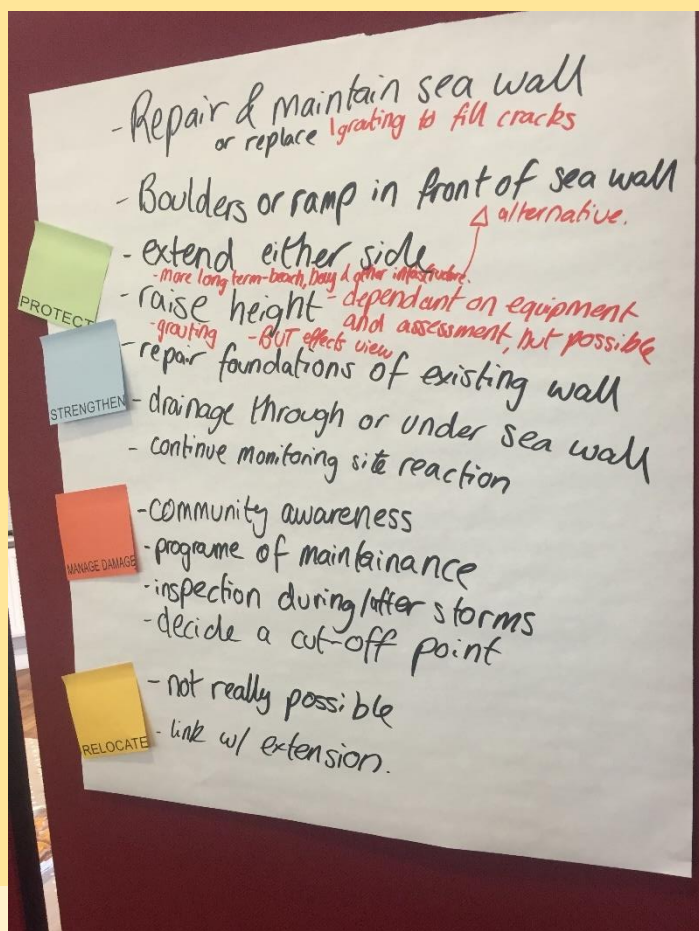 - Repair & maintain sea wall
or replace grouting to fill cracks
- Boulders or ramp in front of sea wall
alternative.
- extend either side
- More long term - beach, bay & other infastructure.
- raise height - dependant on equipment
and assessment, but possible
- grouting - BUT effects view
- repair foundations of existing wall
- drainage through or under sea wall
- continue monitoring site reaction
- community awareness
- programe of maintainance
- inspection during/after storms
- decide a cut-off point
- not really possible
- link w/ extension.
PROTECT
STRENGTHEN
MANAGE DAMAGE
RELOCATE